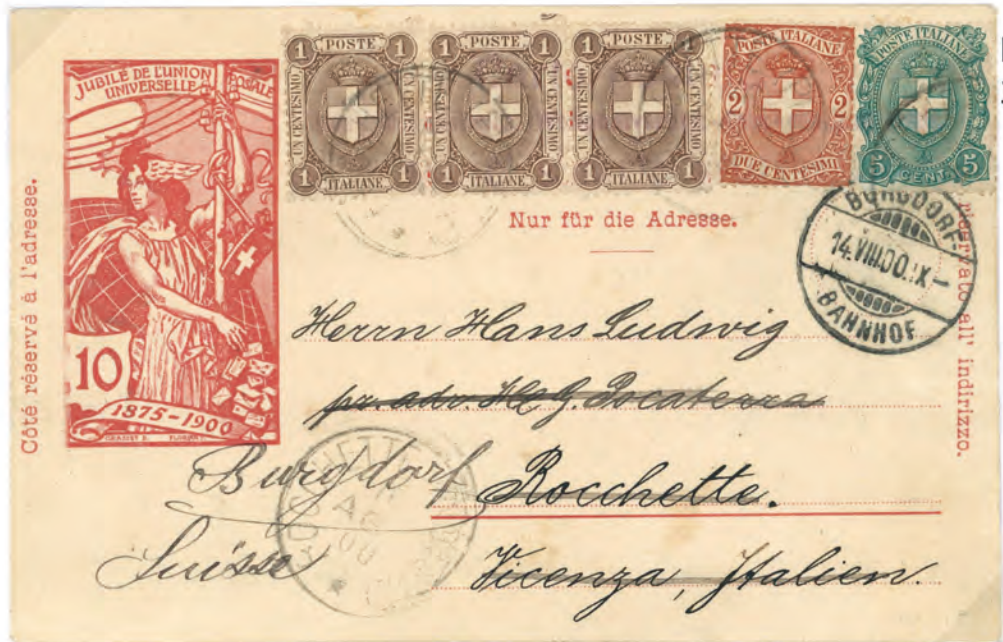 JUBILÉ DE L'UNION POSTALE
UNIVERSELLE
10
1875-1900
Côté réservé à l'adresse.
1 POSTE 1
UN CENTESIMO UN CENTESIMO
1 ITALIANE 1
1 POSTE 1
UN CENTESIMO UN CENTESIMO
1 ITALIANE 1
1 POSTE 1
UN CENTESIMO UN CENTESIMO
1 ITALIANE 1
POSTE ITALIANE
2 2
DUE CENTESIMI
POSTE ITALIANE
5 CENT. 5
Nur für die Adresse.
BURGDORF
14.VIII.00.IX-
BAHNHOF
all' indirizzo.
Herrn Hans Ludwig
Burgdorf
Rocchette.
Suisse
Vicenza, Italien.
AG
00